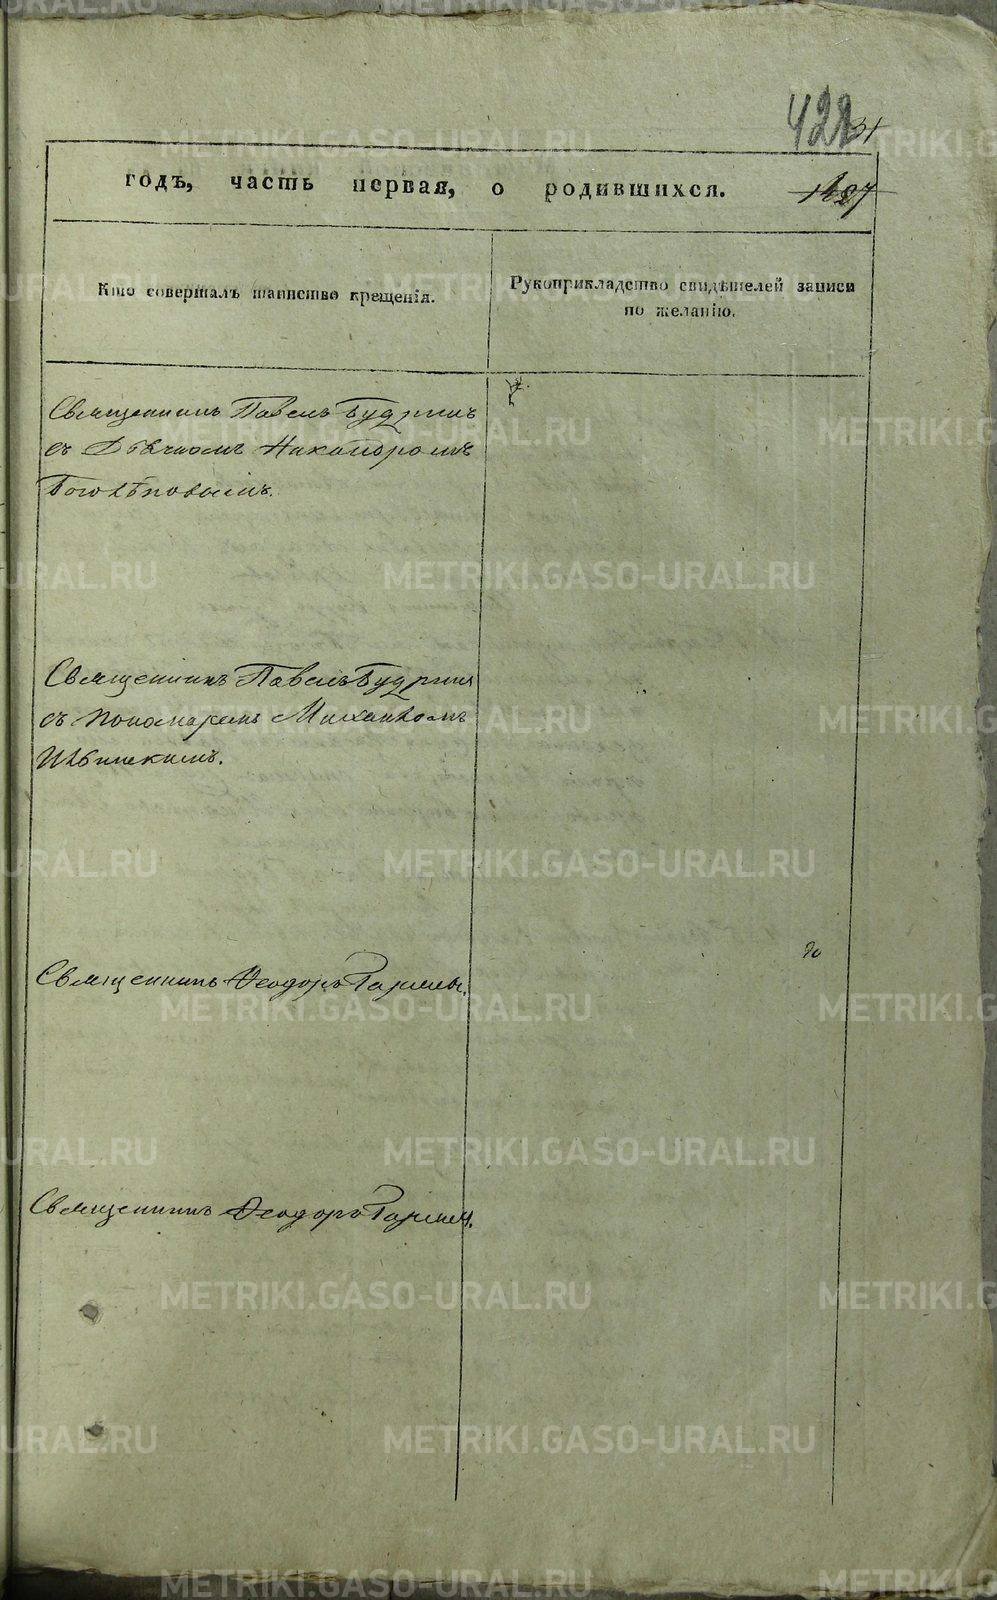 422
31
годъ, часть первая, о родившихся.
Кто совершалъ таинство крещенія.
Рукоприкладство свидѣтелей записи
по желанію.
Священникъ Павелъ Будринъ
съ Дьячкомъ Никаноромъ
Боголѣповымъ.
Священникъ Павелъ Будринъ
съ пономаремъ Михаиломъ
Ивинскимъ.
Священникъ Ѳеодоръ
Священникъ Ѳеодоръ
METRIKI.GASO-URAL.RU